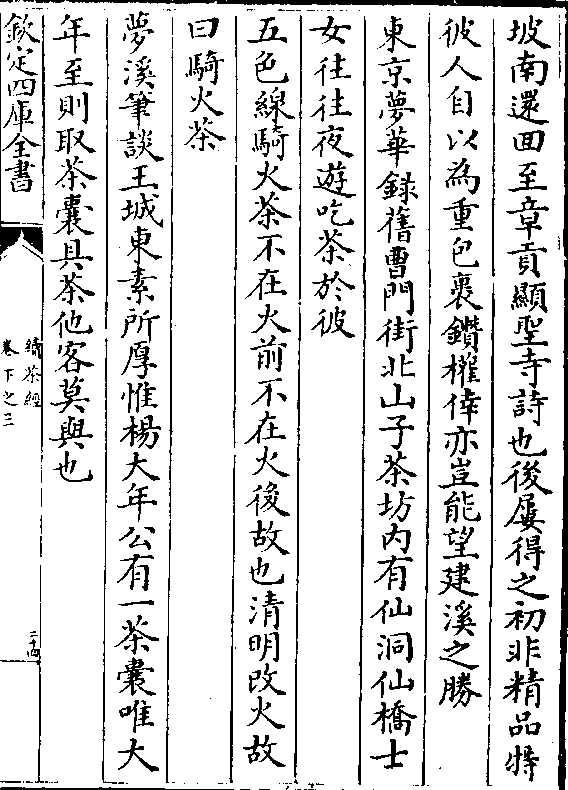 坡南還回至章貢顯聖寺詩也後屢得之初非精品特
彼人自以為重包裹鑽權倖亦豈能望建溪之勝
東京夢華錄舊曹門街北山子茶坊內有仙洞仙橋士
女往往夜遊吃茶於彼
五色線騎火茶不在火前不在火後故也清明改火故
曰騎火茶
夢溪筆談王城東素所厚惟楊大年公有一茶囊唯大
年至則取茶囊具茶他客莫與也
欽定四庫全書
續茶經
卷下之三
二十四